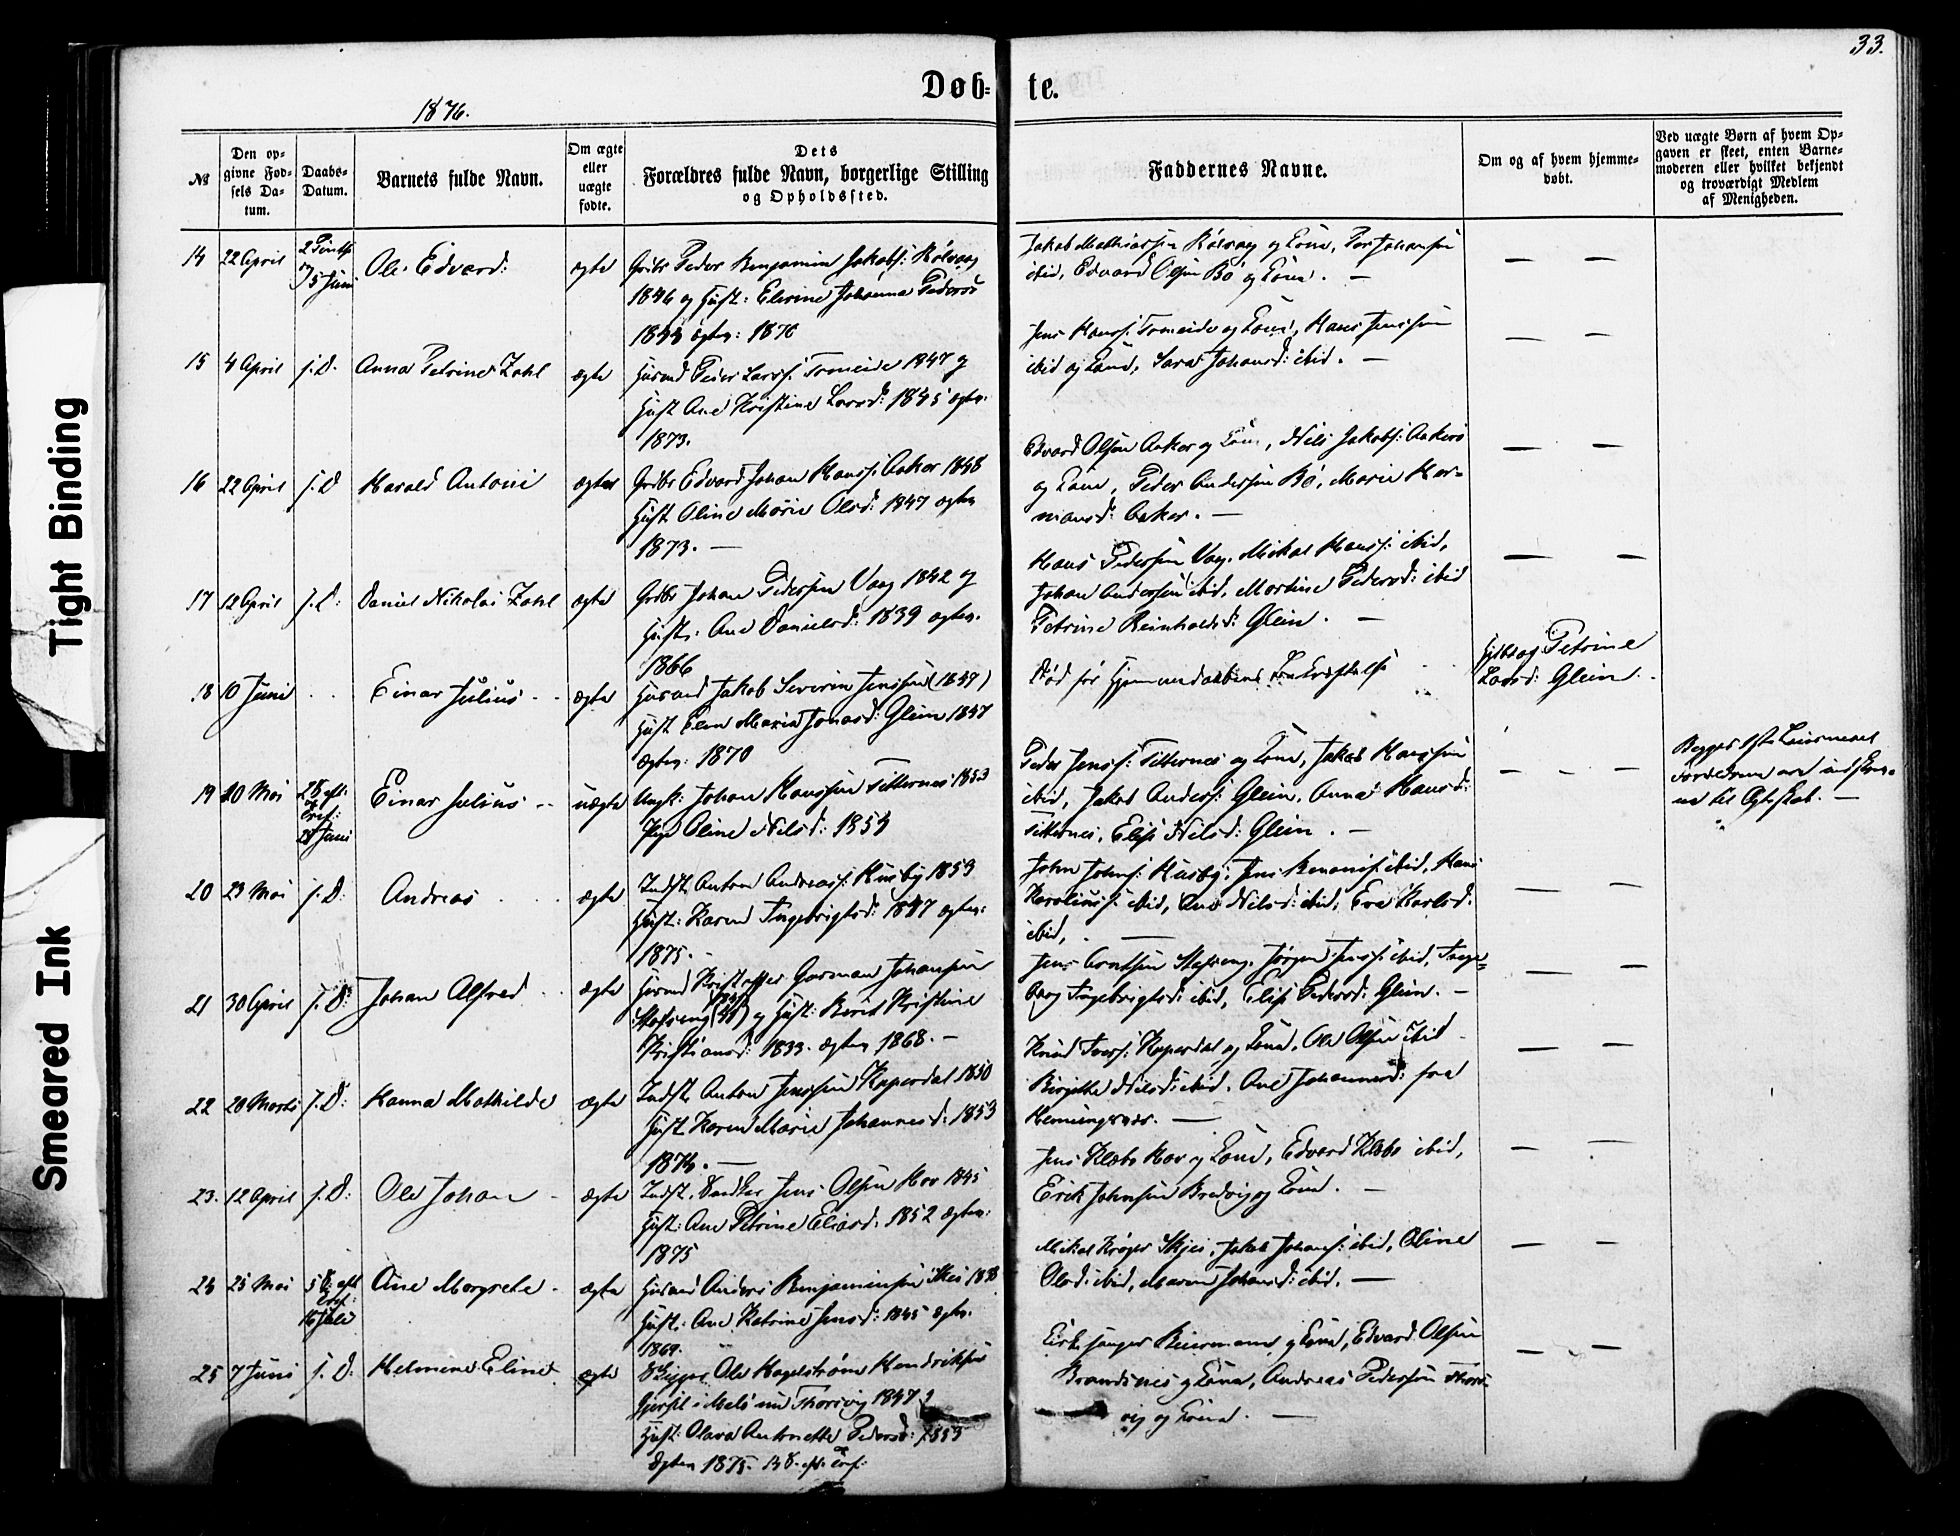 33.
Døb= te.
1876.
№
Den op-
givne Fød-
sels Da-
tum.
Daabs-
Datum.
Barnets fulde Navn.
Om ægte
eller
uægte
fødte.
Dets
Forældres fulde Navn, borgerlige Stilling
og Opholdssted.
Faddernes Navne.
Om og af hvem hjemme-
døbt.
Ved uægte Børn af hvem Op-
gaven er skeet, enten Barne-
moderen eller hvilket bekjendt
og troværdigt Medlem
af Menigheden.
14 22 April 5 Juni Ole Edvard: ægte Peder Benjamin Jakobs:
1846 og Hust: Elerine Johanna Peders
1844 ægtev: 1870
Edvard Olsen Bø og Kone. —
15 4 April j. D. Anna Petrine Zahl ægte Husmd Peder Larss: Tomeide 1847 og
Hust Ane Kristine Larsd: 1845 ægtev.
1873.
Jens Hanss: Tomeide og Kone, Hans Jenssen
ibid og Kone, Sara Johansd: ibid. —
16 22 April j. D Harald Antoni ægte Grdbr Edvard Johan Hanss: Aaker 1848
Hust Oline Marie Olsd: 1847 ægtev
1873. —
Edvard Olsen Aaker og Kone, Nils Jakobs: Aaker
og Kone, Peder Andersen Bø, Marie Her-
mansd: Aaker. —
17 12 April j. D: Daniel Nikolai Zahl ægte Grdbr Johan Pedersen Vaag 1842 og
Hust: Ane Danielsd: 1839 ægtev.
1866
Hans Pedersen Vaag, Mikal Hanss: ibid,
Johan Andersen ibid, Martine Pedersd: ibid
Petrine Reinholdsd: Glein. —
18 10 Juni Einar Julius ægte Husmd Jakob Severin Jenssen (1847)
Hust Elen Maria Jonasd: Glein 1847
ægtev: 1870
Død før
Petrine
Larsd: Glein.
19 10 Mai 28 Juni Einar Julius uægte Ungk: Johan Hanssen Titternes 1853
Pige Oline Nilsd: 1854
Peder Jenss: Titternes og Kone, Jakob Hanssen
ibid, Jakob Anders: Glein, Anna Hansd:
Titternes, Elise Nilsd: Glein. —
Begges 1ste Leiermaal
Forældrene ere indskrev-
ne til Ægteskab. —
20 23 Mai j. D: Andreas ægte Indst. Anton Andreass: Husby 1853
Hust: Karen Ingebrigtsd: 1847 ægtev:
1875. -
John Johns: Husby, Jens ibid, Hans
Karoliuss: ibid, Ane Nilsd: ibid, Eva Karlsd:
ibid, —
21 30 April j. D: Johan Alfred ægte Husmd Kristoffer Gorman Johansen
og Hust: Berit Kristine
Kristiansd: 1833. ægtev 1868. —
Jens Arntsen Jørgen Jenss: ibid, Inge-
borg Ingebrigtsd: ibid, Elise Pedersd: Glein. —
22 20 Marts j. D: Hanna Mathilde ægte Indst. Anton Jenssen Kopardal 1850
Hust Karen Marie Johannesd: 1853
1874. —
Knud Ivers: Kopardal og Kone, Ole Olsen ibid
Birgitte Nilsd: ibid, Ane Johannesd: fra
Henningsvær. —
23. 12 April j. D: Ole Johan ægte Indst. Jens Olsen Hov 1845
Hust: Ane Petrine Eliasd: 1852 ægtev:
1875
Jens Klæbo Hov og Kone, Edvard Klæbo ibid,
Erik Johnsen Bredvig og Kone. —
24 25 Mai 16 Juli Ane Margrete ægte Husmd Anders Benjaminsen Skei 1838
Hust: Ane Katrine Jensd: 1845 ægtev.
1869.
Mikal Krøger Skjei, Jakob Johans: ibid, Oline
Olsd: ibid, Maren Johansd: ibid. —
25 7 Juni j. D: Helmine Eline ægte Ole Hagelstrøm Hendriksen
Thorsvig 1847
Hust: Olava Antonette Pedersd: 1853
Ægtev 1875.
Kirkesanger Beiermann og Kone, Edvard Olsen
Brandsnes og Kone, Andreas Pedersen Thors-
vig og Kone. —
Tight Binding
Smeared Ink